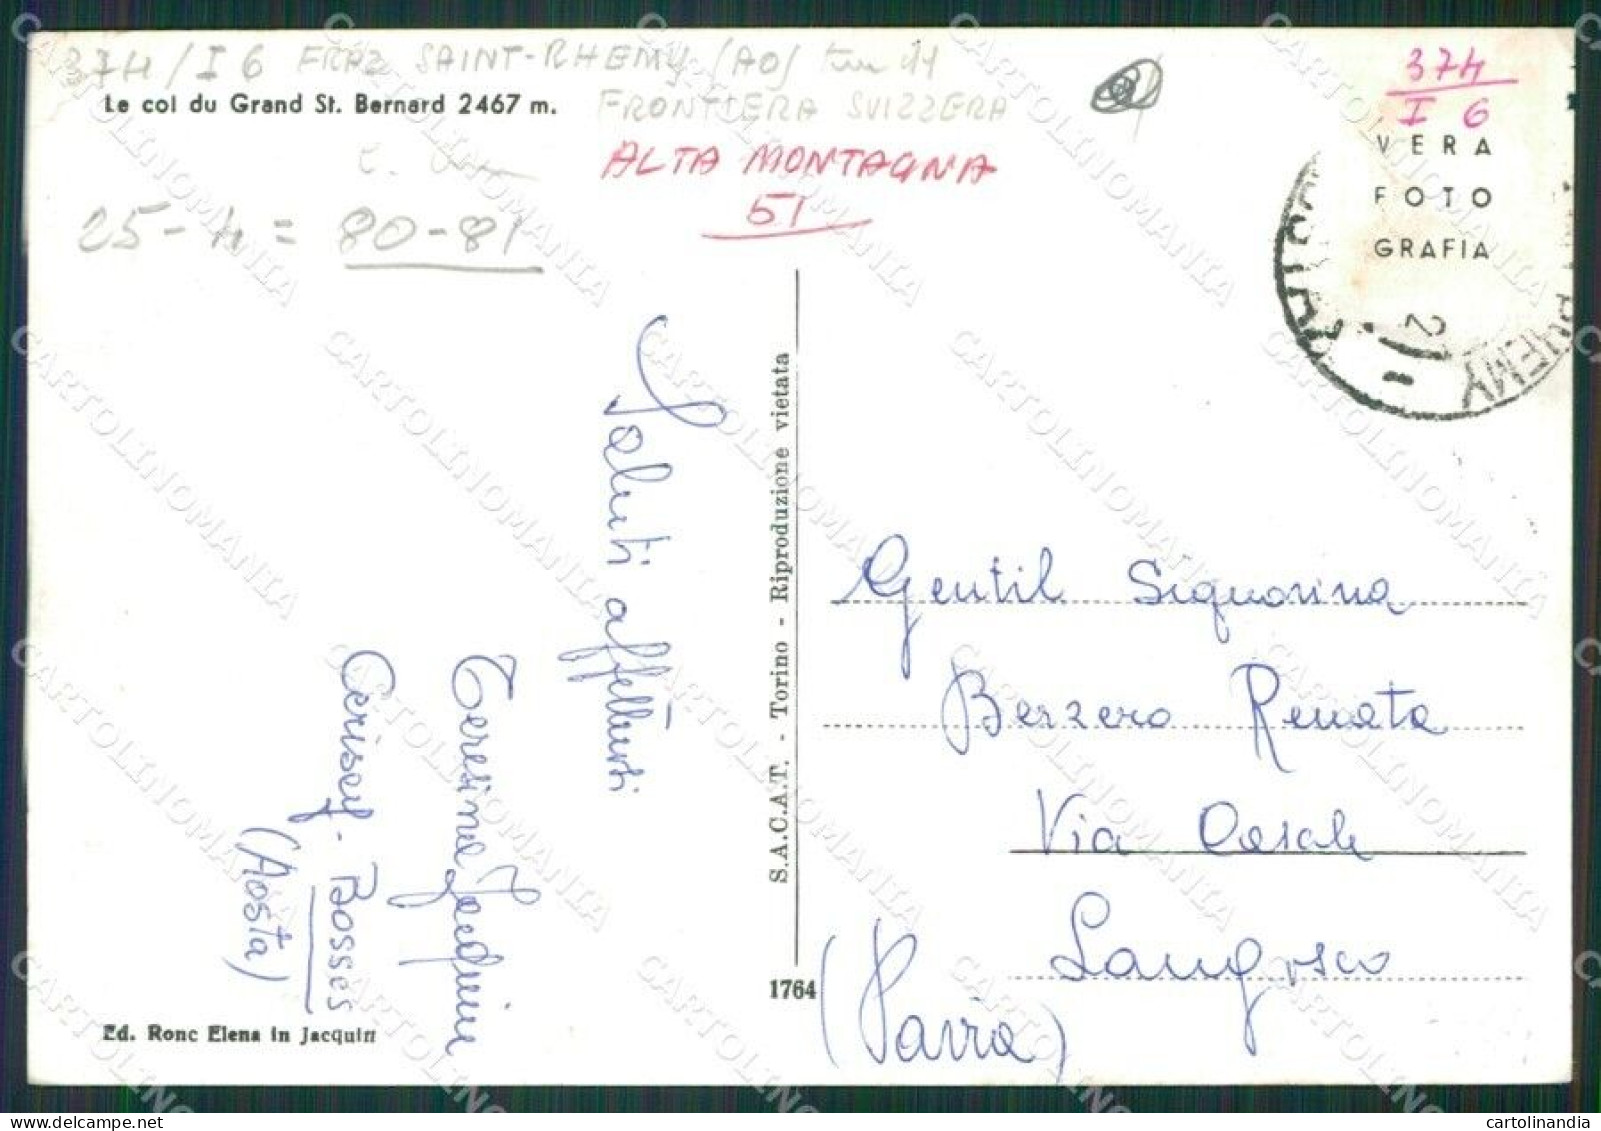 374/I 6 FRAZ SAINT-RHEMY (AO) km 11
Le col du Grand St. Bernard 2467 m.
FRONTIERA SVIZZERA
ALTA MONTAGNA
51
25-4= 80-81
374
I 6
VERA
FOTO
GRAFIA
RHEMY
Saluti affettuosi
Teresina Jacquin
Cerisey - Bosses
(Aosta)
S.A.C.A.T. - Torino - Riproduzione vietata
1764
Gentil Signorina
Berzero Renata
Via Casale
Langosco
(Pavia)
Ed. Ronc Elena in Jacquin
CARTOLINOMANIA
cartolinandia